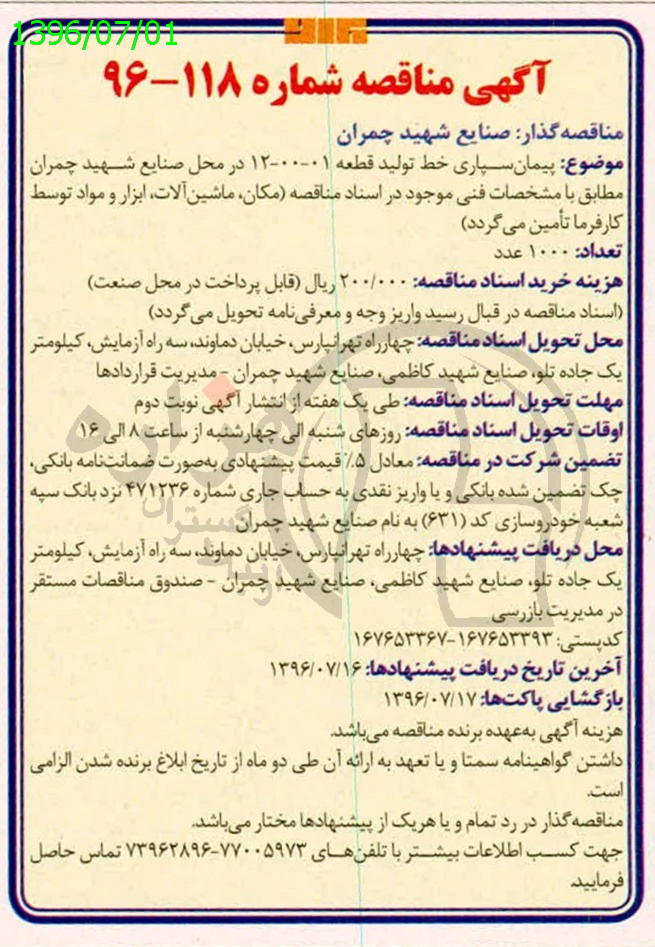 1396/07/01
آگهی مناقصه شماره ۱۱۸-۹۶
مناقصه‌گذار: صنایع شهید چمران
موضوع: پیمان‌سپاری خط تولید قطعه ۰۱-۰۰-۱۲ در محل صنایع شهید چمران
مطابق با مشخصات فنی موجود در اسناد مناقصه (مکان، ماشین‌آلات، ابزار و مواد توسط
کارفرما تأمین می‌گردد)
تعداد: ۱۰۰۰ عدد
هزینه خرید اسناد مناقصه: ۲۰۰/۰۰۰ ریال (قابل پرداخت در محل صنعت)
(اسناد مناقصه در قبال رسید واریز وجه و معرفی‌نامه تحویل می‌گردد)
محل تحویل اسناد مناقصه: چهارراه تهرانپارس، خیابان دماوند، سه راه آزمایش، کیلومتر
یک جاده تلو، صنایع شهید کاظمی، صنایع شهید چمران - مدیریت قراردادها
مهلت تحویل اسناد مناقصه: طی یک هفته از انتشار آگهی نوبت دوم
اوقات تحویل اسناد مناقصه: روزهای شنبه الی چهارشنبه از ساعت ۸ الی ۱۶
تضمین شرکت در مناقصه: معادل ۵٪ قیمت پیشنهادی به‌صورت ضمانت‌نامه بانکی،
چک تضمین شده بانکی و یا واریز نقدی به حساب جاری شماره ۴۷۱۲۳۶ نزد بانک سپه
شعبه خودروسازی کد (۶۳۱) به نام صنایع شهید چمران
محل دریافت پیشنهادها: چهارراه تهرانپارس، خیابان دماوند، سه راه آزمایش، کیلومتر
یک جاده تلو، صنایع شهید کاظمی، صنایع شهید چمران - صندوق مناقصات مستقر
در مدیریت بازرسی
کدپستی: ۱۶۷۶۵۳۳۹۳-۱۶۷۶۵۳۳۶۷
آخرین تاریخ دریافت پیشنهادها: ۱۳۹۶/۰۷/۱۶
بازگشایی پاکت‌ها: ۱۳۹۶/۰۷/۱۷
هزینه آگهی به‌عهده برنده مناقصه می‌باشد.
داشتن گواهینامه سمتا و یا تعهد به ارائه آن طی دو ماه از تاریخ ابلاغ برنده شدن الزامی
است.
مناقصه‌گذار در رد تمام و یا هریک از پیشنهادها مختار می‌باشد.
جهت کسب اطلاعات بیشتر با تلفن‌های ۷۷۰۰۵۹۷۳-۷۳۹۶۲۸۹۶ تماس حاصل
فرمایید.